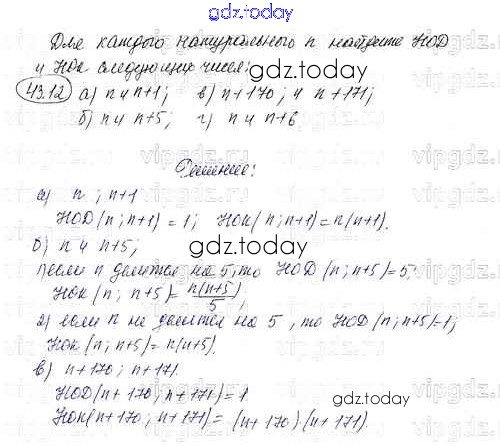 gdz.today
Для каждого натурального n найдите НОД
и НОК следующих чисел:
gdz.today
43.12 а) n и n+1; в) n+170; и n+171;
б) n и n+5; г) n и n+6
Решение:
а) n ; n+1
НОД(n; n+1) = 1; НОК(n; n+1) = n(n+1).
б) n и n+5;
gdz.today
1) если n делится на 5, то НОД (n; n+5) = 5.
НОК (n; n+5) = n(n+5)/5
2) если n не делится на 5, то НОД(n; n+5)=1;
НОК (n; n+5) = n(n+5).
в) n+170; n+171.
НОД(n+170; n+171) = 1.
gdz.today
НОК(n+170; n+171) = (n+170)(n+171).